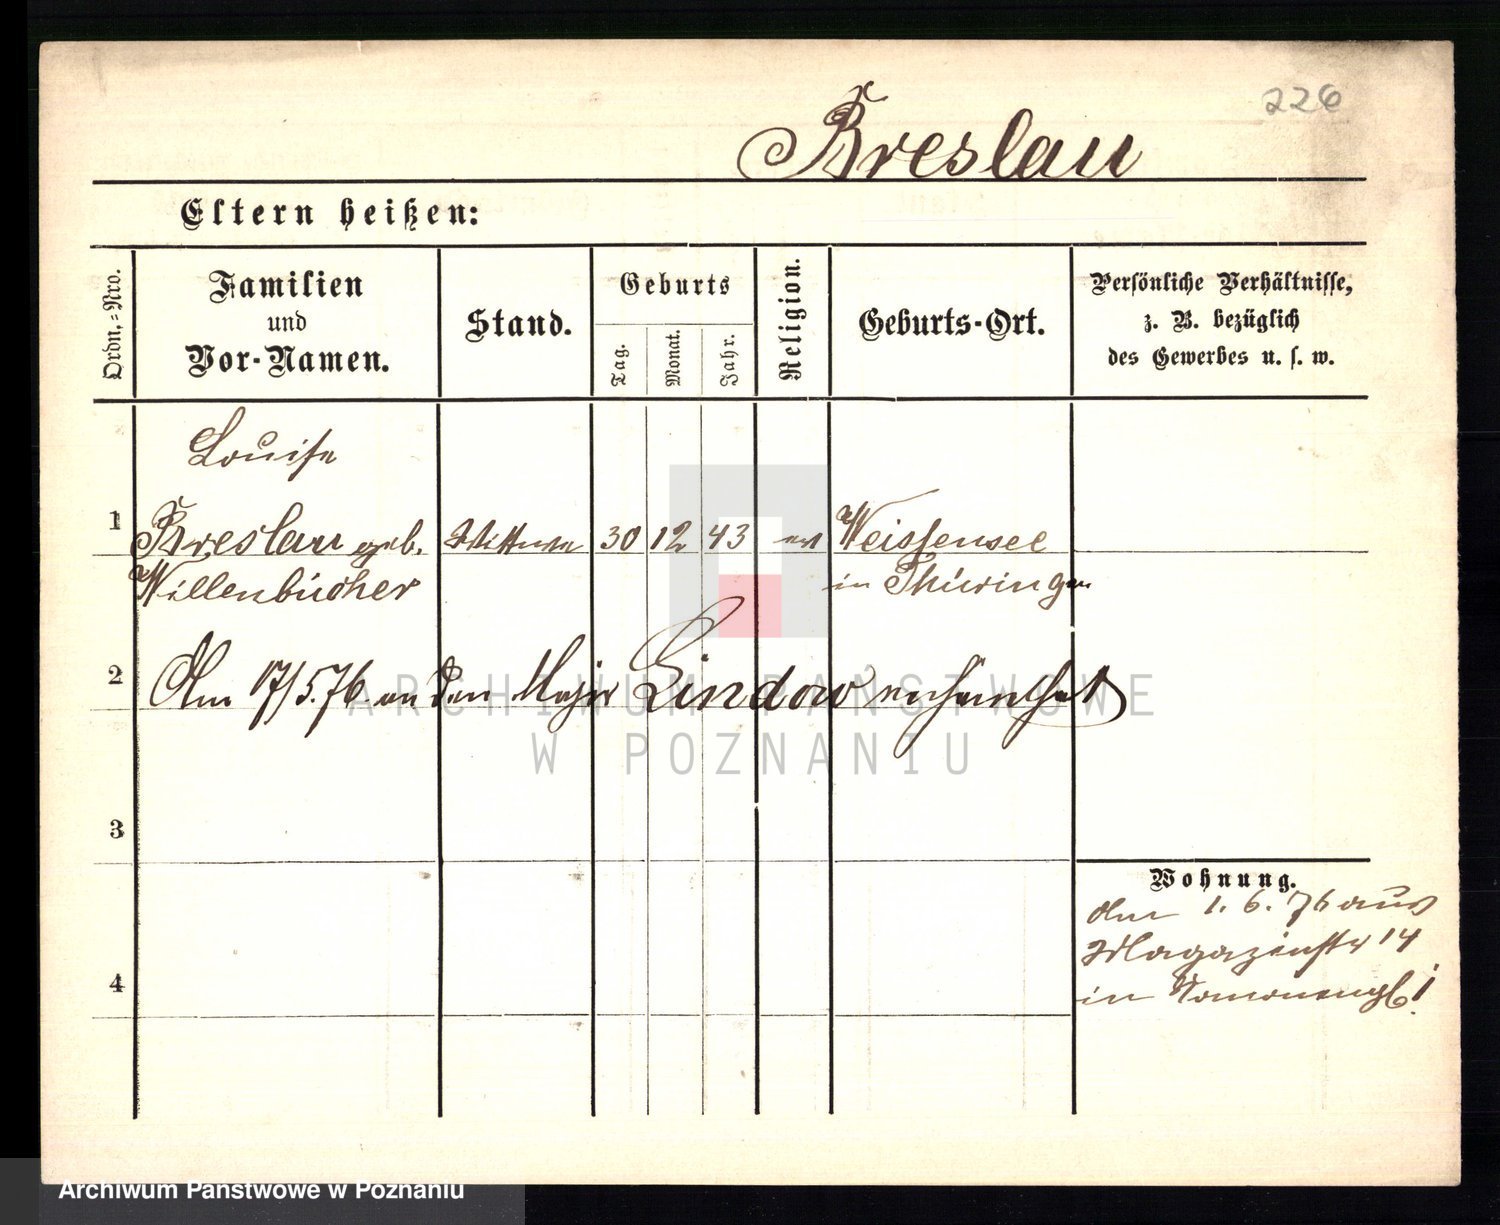 226
Breslau
Eltern heißen:
Ordn.-Nro.
Familien
und
Vor-Namen.
Stand.
Geburts
Tag.
Monat.
Jahr.
Religion.
Geburts-Ort.
Persönliche Verhältnisse,
z. B. bezüglich
des Gewerbes u. s. w.
Louise
1 Breslau geb. Wittwe 30 12 43 ev Weissensee
Willenbücher in Thüringen
2 Am 17/5.76 an den Major Lindow verheirathet
ARCHIWUM PAŃSTWOWE
W POZNANIU
3
Wohnung.
Am 1. 6. 76 aus
Magazinstr 14
4 in
Archiwum Państwowe w Poznaniu